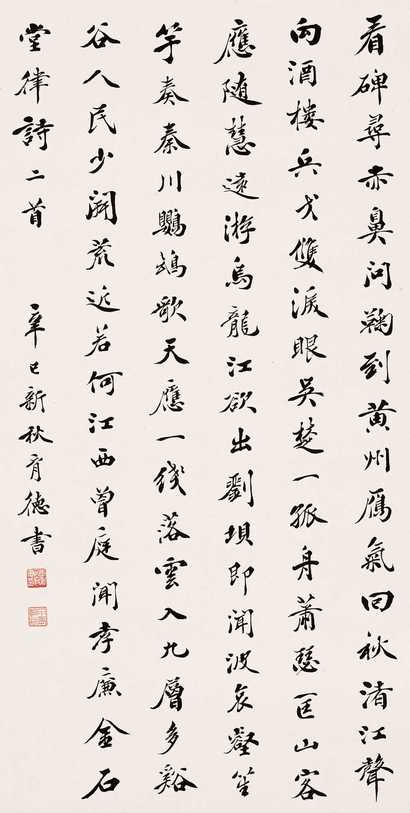 看碑尋赤鼻问鞠到黄州鴈氣回秋渚江聲
向酒樓兵戈雙淚眼吳楚一孤舟蕭瑟匡山客
應随慧遠游烏龍江欲出劉垻即聞波哀壑笙
竽奏秦川鸚鵡歌天應一綫落雲入九層多谿
谷人民少開荒近若何江西曾庭聞孝廉金石
堂律詩二首
辛巳新秋育德書